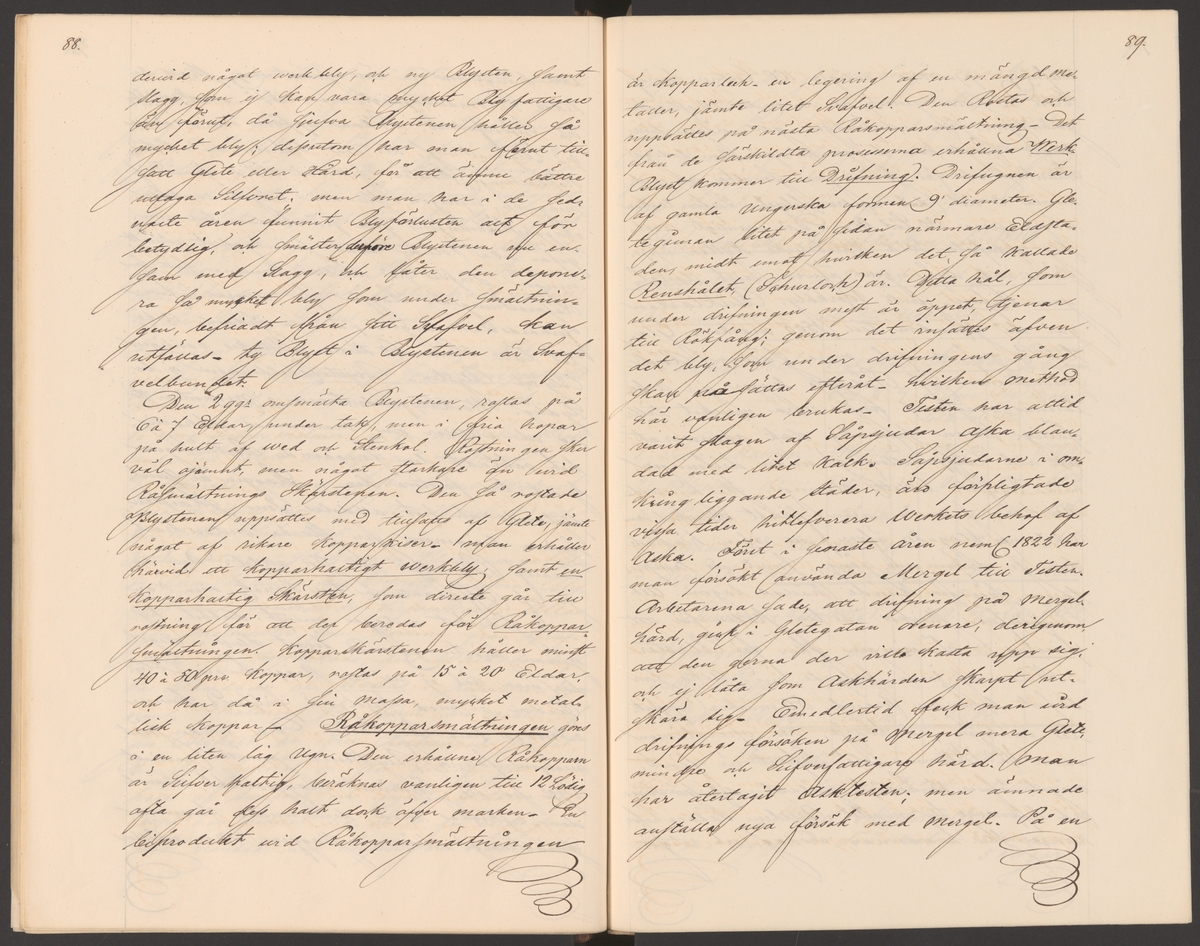 88.
dervid något werkbly, och ny Blysten, samt
slagg, som ej kan vara mycket Bly fattigare
än förut, då sjelfva Blystenen håller så
mycket bly; dessutom har man förut till-
satt Glete eller Härd, för att ännu bättre
utlaga Silfvret; men man har i de sed-
naste åren funnit Blyförlusten allt för
betydlig, och smälter derföre Blystenen nu en-
sam med Slagg, och låter den depone-
ra så mycket bly som under smältnin-
gen, befriadt från sitt Svafvel, kan
utfällas - ty Blyet i Blystenen är Svaf-
velbundet.
Den 2 ggr omsmälta Blystenen, rostas på
6 à 7 Eldar, under tak, men i fria hopar
på hult af wed och Stenkol. Rostningen sker
väl ojämnt, men något starkare än vid
Råsmältnings Skärstenen. Den så rostade
Blystenen uppsättes med tillsatts af Glete, jämte
något af rikare Kopparkiser - man erhåller
härvid ett Kopparhaltigt werkbly, samt en
Kopparhaltig Skärsten, som direkte går till
rostning för att der beredas för Råkoppar-
smältningen. Kopparskärstenen håller minst
40 à 50 prc Koppar, rostas på 15 à 20 Eldar,
och har då i sin massa, mycket metal-
lisk koppar - Råkopparsmältningen göres
i en liten låg ugn. Den erhållna Råkopparn
är Silfver haltig, beräknas vanligen till 12 Lödig
ofta går dess halt dock öfver marken - En
biprodukt vid Råkopparsmältningen
89.
är Kopparlech - en legering af en mängd me-
taller, jämte litet Svafvel. Den Rostas och
uppsättes på nästa Råkopparsmältning - Det
från de särskildta processerna erhållna Werk-
Blyet kommer till Drifning. Drifugnen är
af gamla Ungerska formen 9' diameter. Gle-
tegatan litet på sidan närmare Eldsta-
den, midt emot hvilken det så kallade
Renshålet, (Schurloch) är. Detta hål, som
under drifningen mest är öppet, tjenar
till Rökfång; genom det insättes äfven
det bly, som under drifningens gång
skall på sättas efteråt - hvilken method
här vanligen brukas - Testen har altid
varit slagen af Såpsjudar Aska blan-
dad med litet Kalk. Såpsjudarne i om-
kring liggande städer, äro förpligtade
vissa tider hitlefverera Werkets behof af
Aska. Först i senaste åren neml. 1822 har
man försökt använda Mergel till Testen.
Arbetarena sade, att drifning på Mergel-
härd, gick i Gletegatan orenare, derigenom
att den gerna der ville kasta upp sig,
och ej låta som Askhärden skarpt ut-
skära sig - Emedlertid fick man vid
drifnings försöken på Mergel mera Glete,
mindre och Silfverfattigare härd. Man
har återtagit Asktesten; men ämnade
anställa nya försök med Mergel. På en